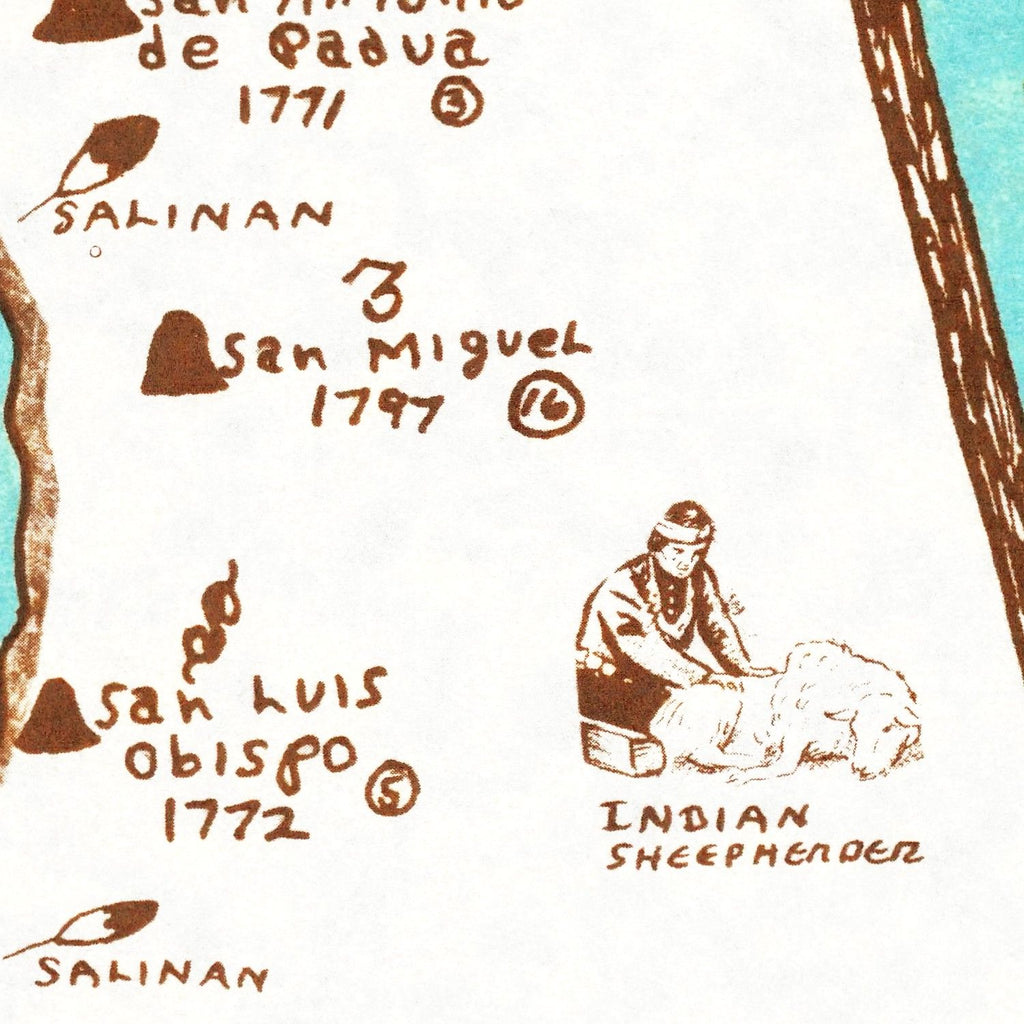 San Antonio
de Padua
1771 3
SALINAN
San Miguel
1797 16
San Luis
Obispo
1772 5
INDIAN
SHEEPHERDER
SALINAN